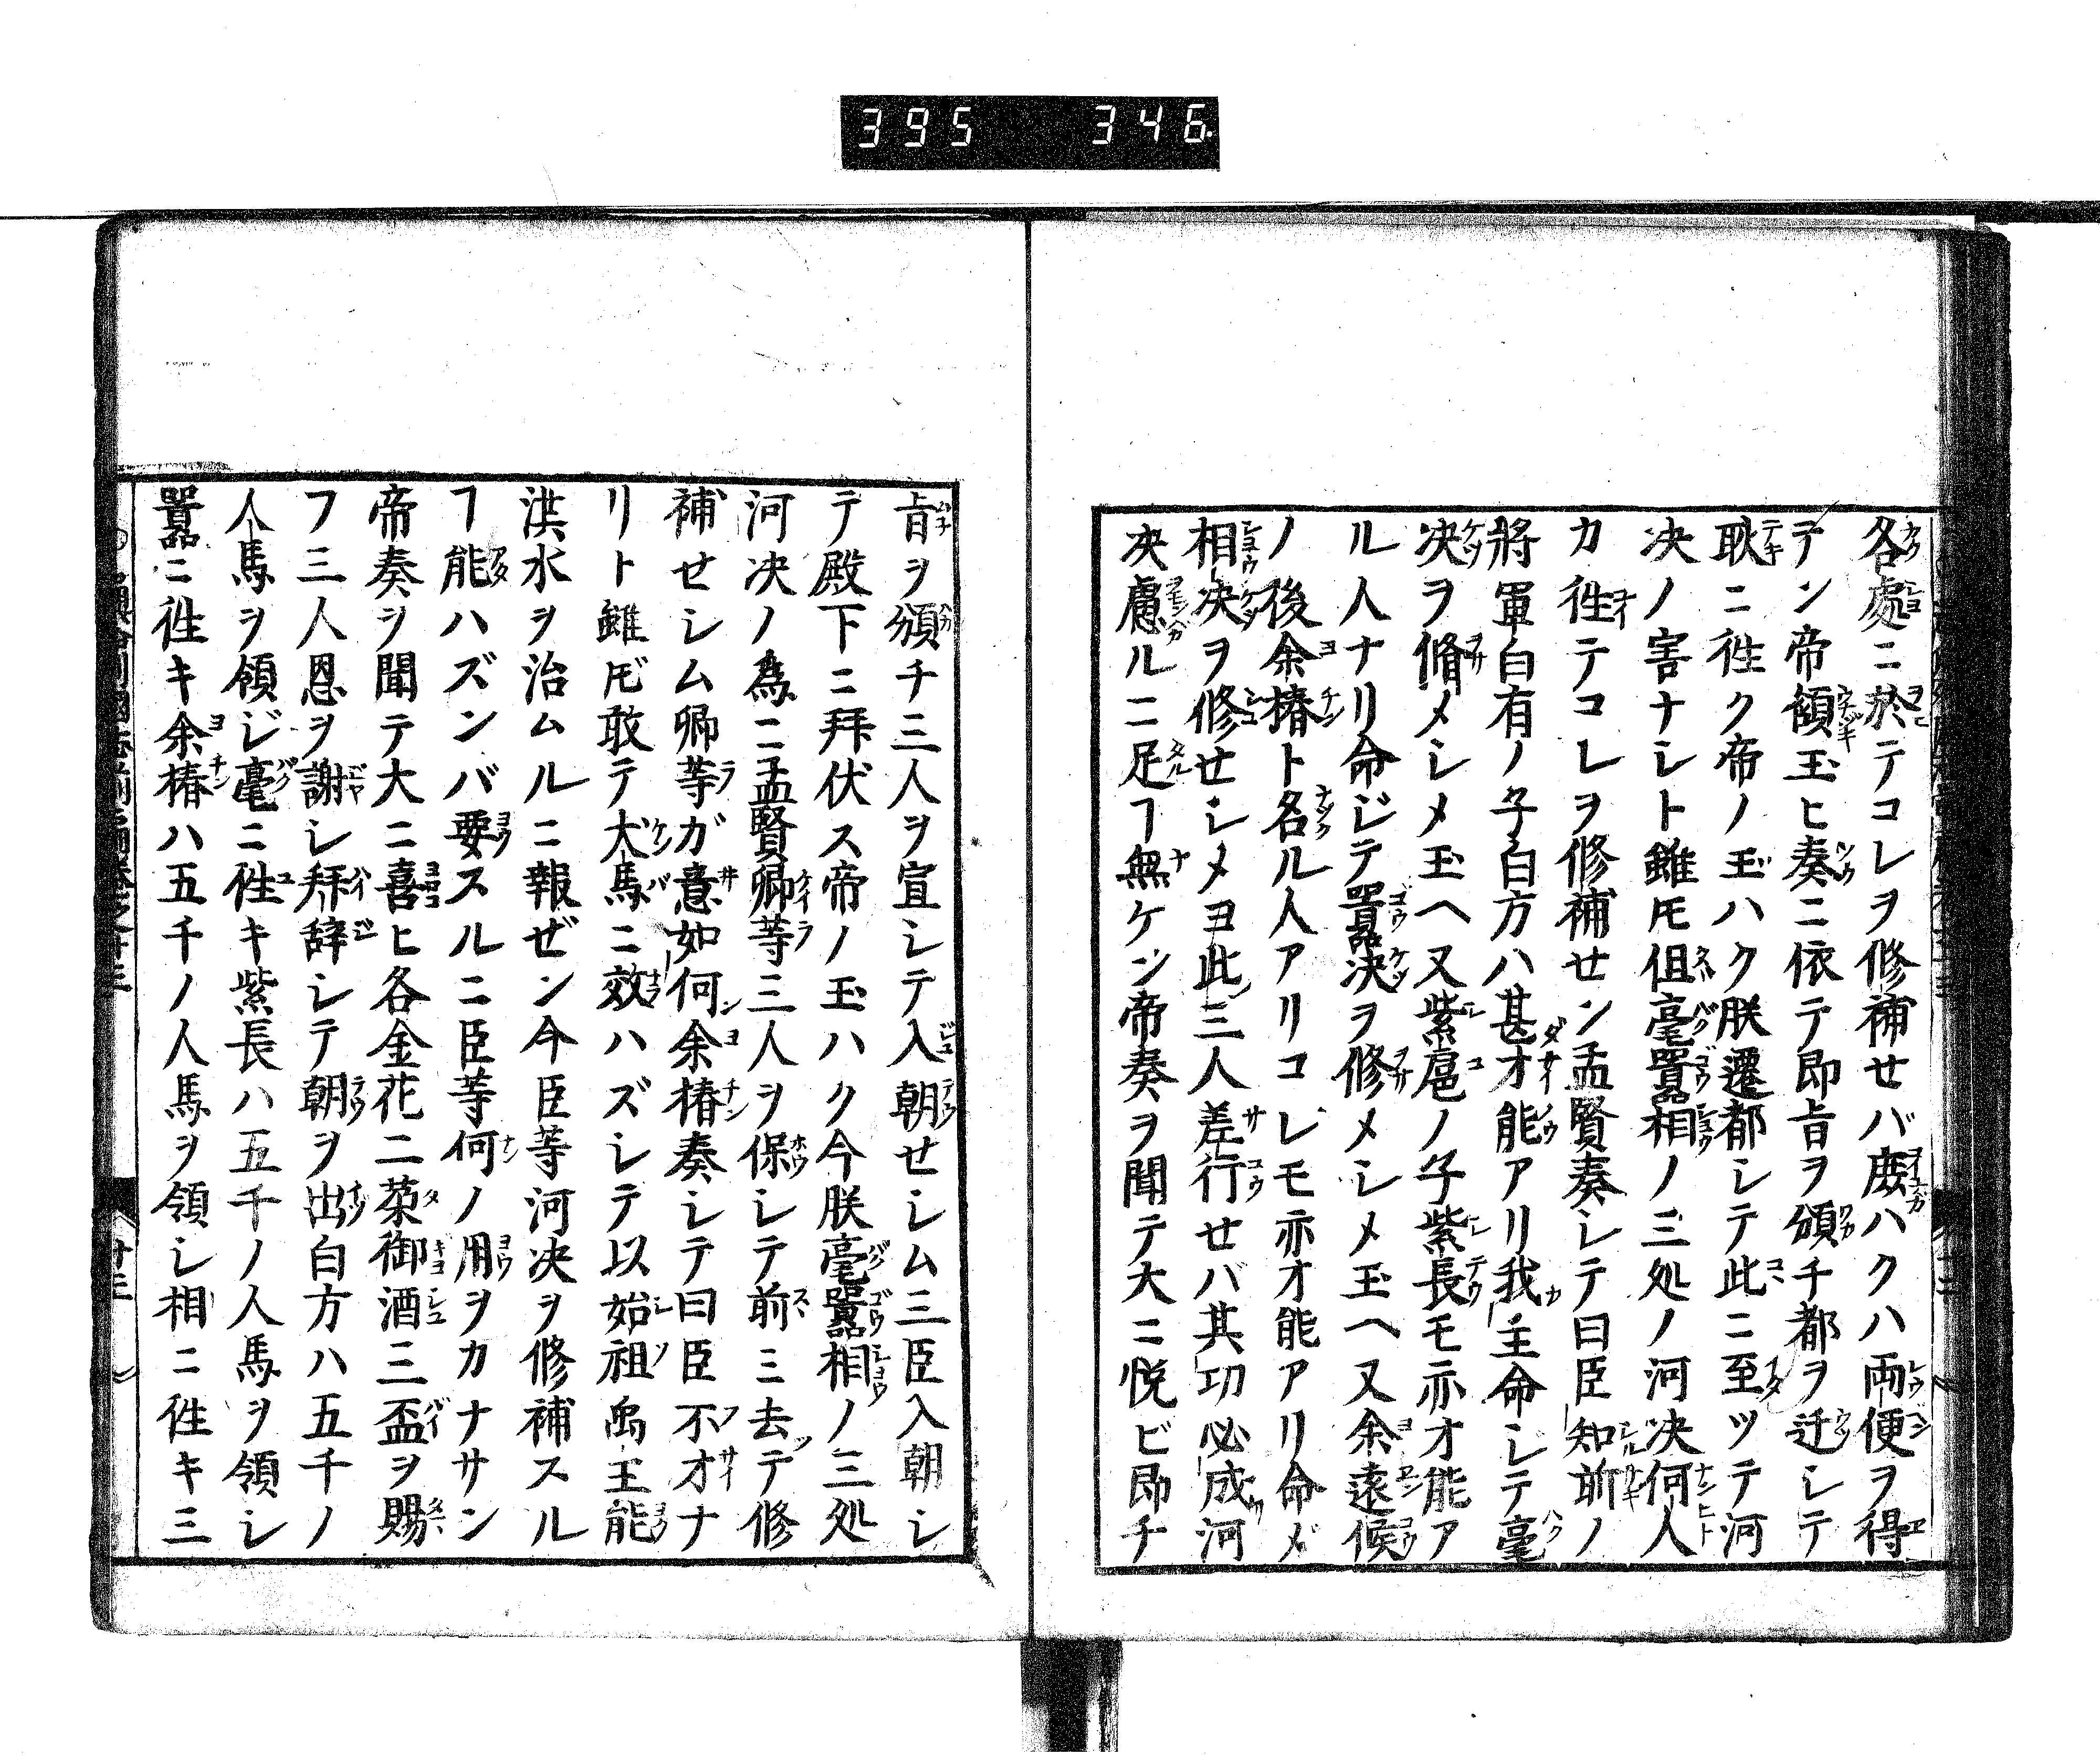 395 346.
各處ニ於テコレヲ修補セバ庻ハクハ両便ヲ得
テン帝頷玉ヒ奏ニ依テ即旨ヲ頒チ都ヲ迁シテ
耿ニ徃ク帝ノ玉ハク朕遷都シテ此ニ至ツテ河
决ノ害ナシト雖𪜈伹亳囂相ノ三処ノ河决何人
カ徃テコレヲ修補せン孟賢奏シテ曰臣知前ノ
將軍白有ノ子白方ハ甚才能アリ我主命シテ亳
决ヲ脩メシメ玉ヘ又紫扈ノ子紫長モ亦才能ア
ル人ナリ命ジテ囂决ヲ修メシメ玉ヘ又余遠候
ノ後余椿ト名ル人アリコレモ亦才能アリ命ジ
相决ヲ修せシメヨ此三人差行せバ其功必成河
决慮ルニ足ヿ無ケン帝奏ヲ聞テ大ニ悦ビ即チ
旨ヲ頒チ三人ヲ宣シテ入朝せシム三臣入朝シ
テ殿下ニ拜伏ス帝ノ玉ハク今朕亳囂相ノ三処
河决ノ為ニ孟賢卿等三人ヲ保シテ前ミ去テ修
補せシム卿等ガ意如何余椿奏シテ曰臣不才ナ
リト雖𪜈敢テ犬馬ニ效ハズシテ以始祖禹王能
洪水ヲ治ムルニ報ぜン今臣等河决ヲ修補スル
ヿ能ハズンバ要スルニ臣等何ノ用ヲカナサン
帝奏ヲ聞テ大ニ喜ヒ各金花二朶御酒三盃ヲ賜
フ三人恩ヲ謝シ拜辞シテ朝ヲ出白方ハ五千ノ
人馬ヲ領ジ亳ニ徃キ紫長ハ五千ノ人馬ヲ領シ
囂ニ徃キ余椿ハ五千ノ人馬ヲ領シ相ニ徃キ三